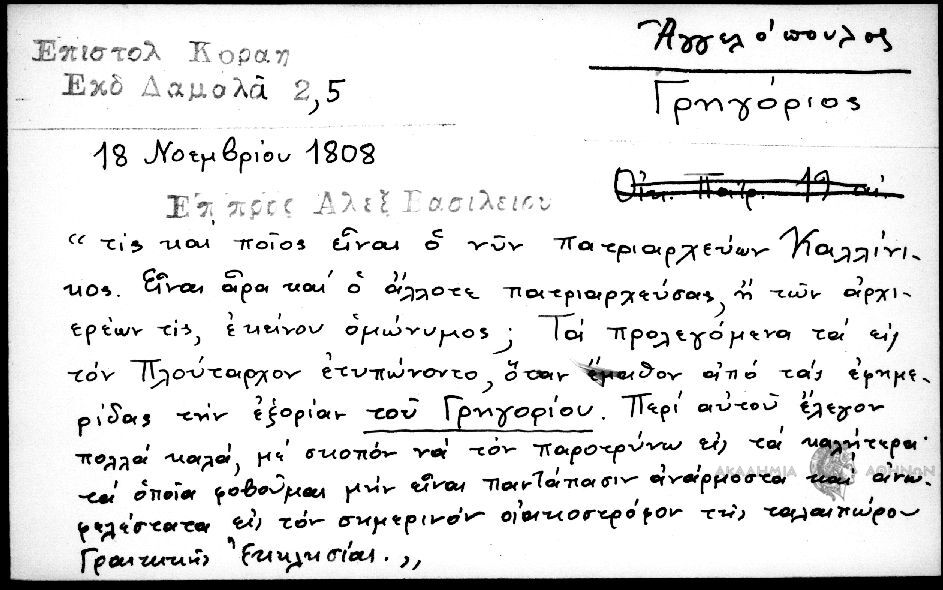 Ἀγγελόπουλος
Γρηγόριος
Επιστολ Κοραη
Εκδ Δαμαλᾶ 2,5
18 Νοεμβρίου 1808
Οἰκ. Πατρ. 19 αἰ
Επ προς Αλεξ Βασιλειου
“τίς καί ποῖος εἶναι ὁ νῦν πατριαρχεύων Καλλίνι-
κος. Εἶναι ἆρα καί ὁ ἄλλοτε πατριαρχεύσας, ἤ τῶν ἀρχι-
ερέων τίς, ἐκείνου ὁμώνυμος; Τά προλεγόμενα τά εἰς
τόν Πλούταρχον ἐτυπώνοντο, ὅταν ἔμαθον ἀπό τάς ἐφημε-
ρίδας τήν ἐξορίαν τοῦ Γρηγορίου. Περί αὐτοῦ ἔλεγον
πολλά καλά, μέ σκοπόν νά τόν παροτρύνω εἰς τά καλήτερα·
τά ὁποῖα φοβοῦμαι μήν εἶναι παντάπασιν ἀνάρμοστα καί ἀνω-
φελέστατα εἰς τόν σημερινόν οἰακοστρόφον τῆς ταλαιπώρου
Γραικικῆς Ἐκκλησίας.,,
ΑΚΑΔΗΜΙΑ ΑΘΗΝΩΝ